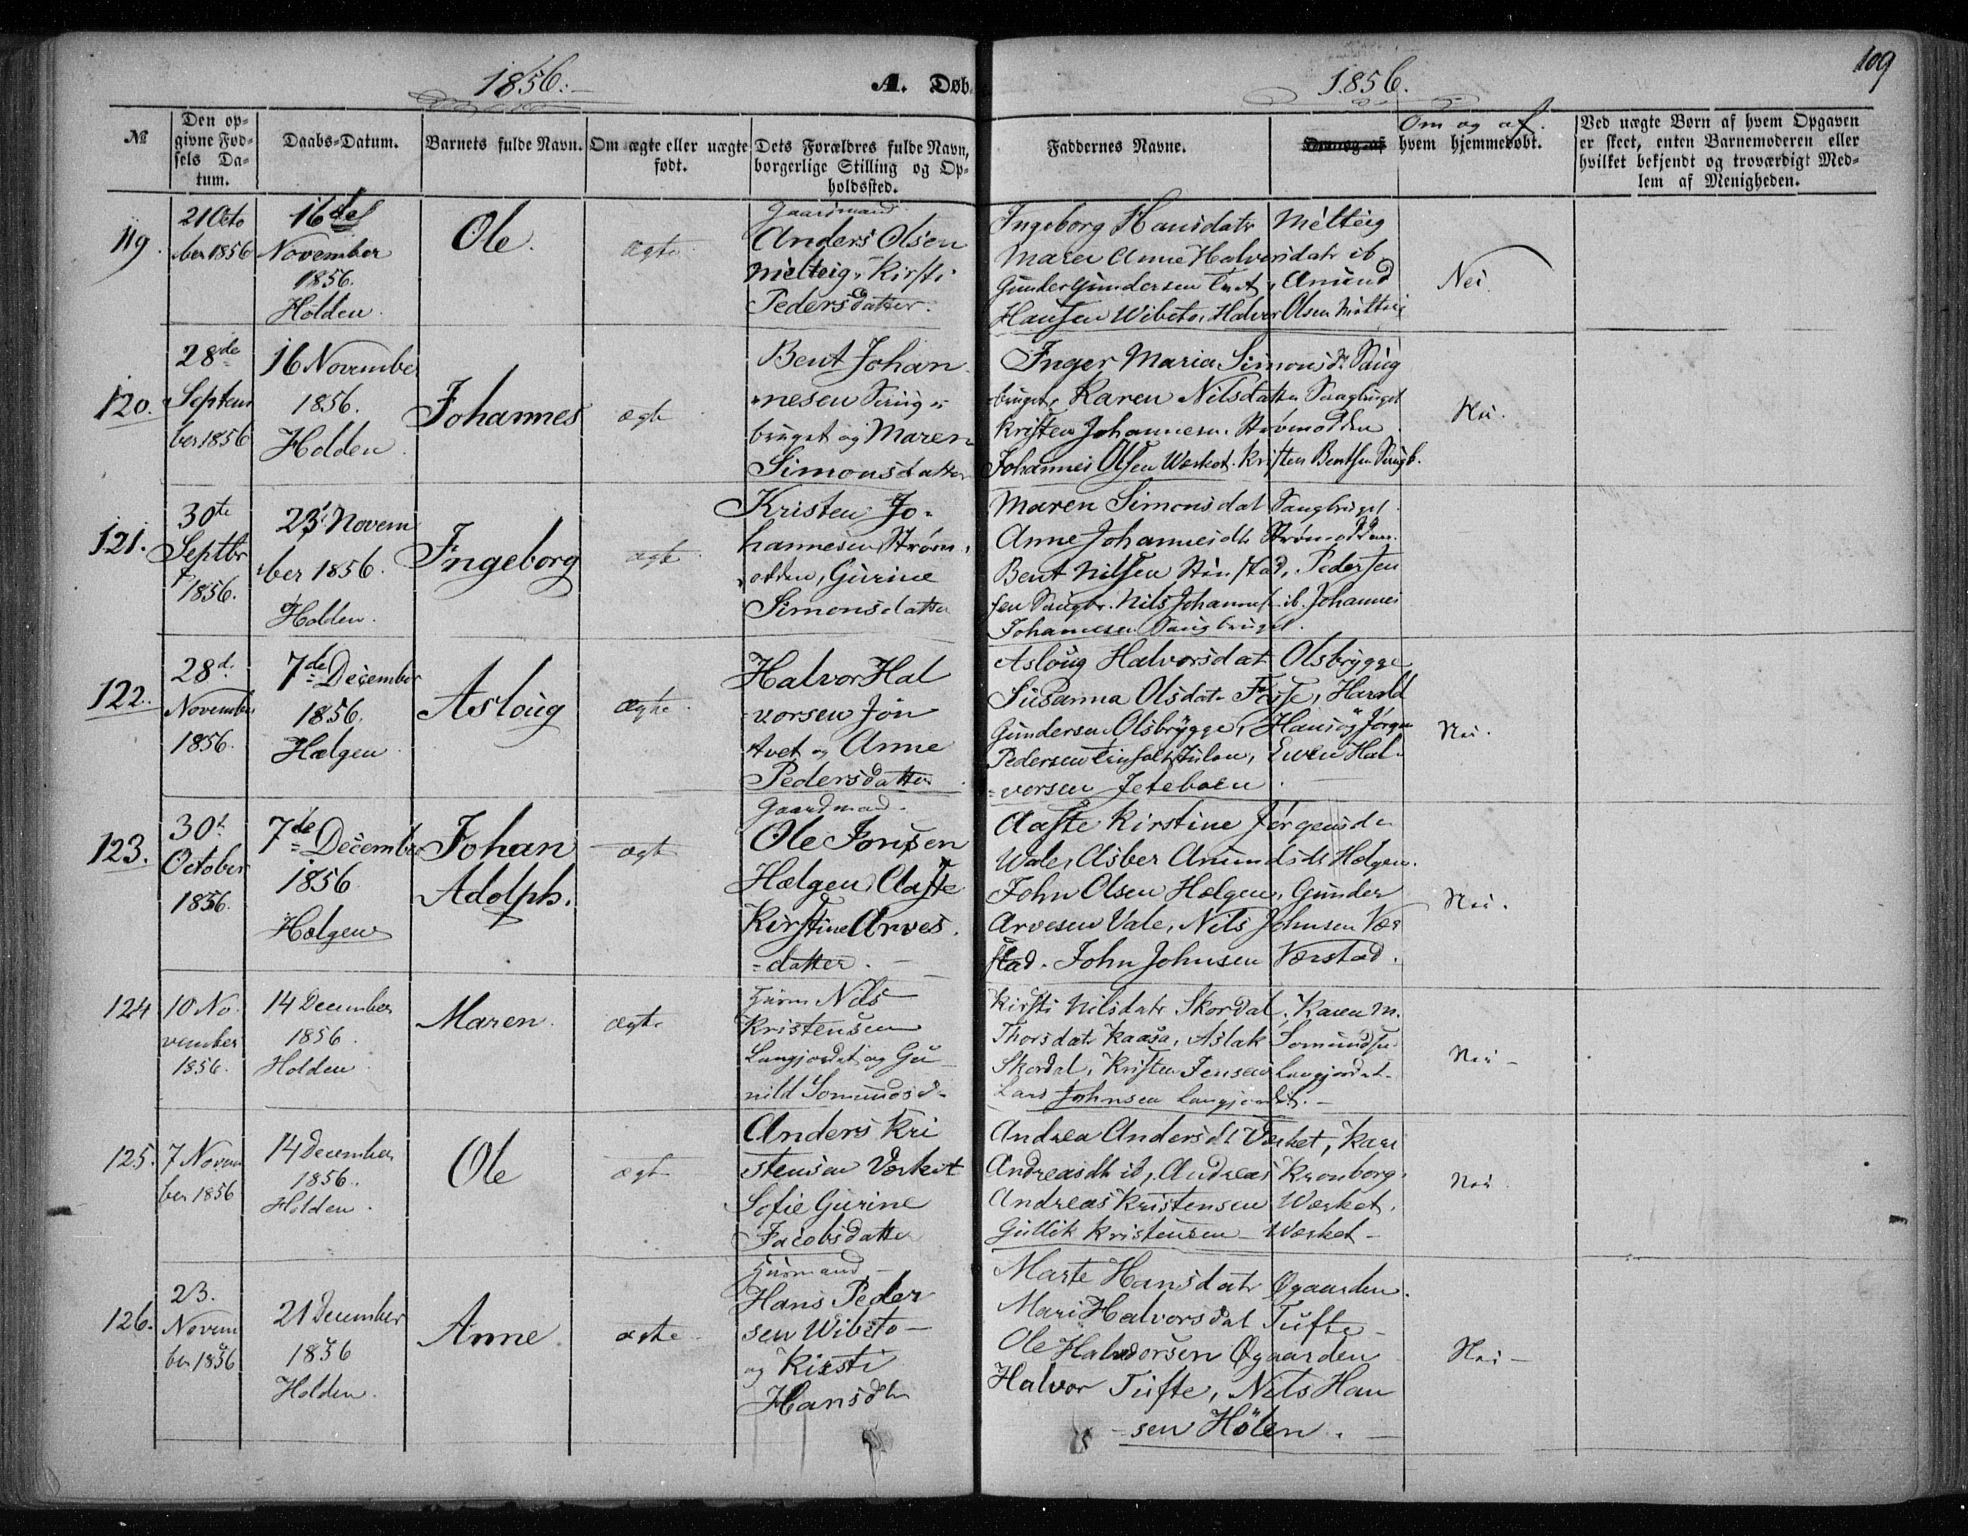 1856.
A. Døb
1856.
109
№
Den op-
givne Fød-
sels Da-
tum.
Daabs-Datum.
Barnets fulde Navn.
Om ægte eller uægte
født.
Dets Forældres fulde Navn,
borgerlige Stilling og Op-
holdssted.
Faddernes Navne.
Om og af
hvem hjemmedøbt.
Ved uægte Børn af hvem Opgaven
er skeet, enten Barnemoderen eller
hvilket bekjendt og troværdigt Med-
lem af Menigheden.
119.
21 Octo
ber 1856
16de
November
1856.
Holden.
Ole.
ægte
Gaardmand
Anders Olsen
Melteig, Kirsti
Pedersdatter.
Ingeborg Hansdatr Melteig
Maren Anne Halvorsdatr ib
Gunder Gundersen, Amund
Hansen Wibeto, Halvor Olsen Melteig
Nei.
120.
28de
Septem
ber 1856
16 November
1856.
Holden
Johannes
ægte
Bent Johan
nesen Saug
bruget og Maren
Simonsdatter
Inger Maria Simonsdr Saug
bruget, Karen Nilsdatter Saugbruget
Kristen Johannesen Strømodden
Johannes Olsen Værket. Kristen Bentsen Saugb.
Nei.
121.
30te
Septbr
1856.
23 Novem
ber 1856.
Holden.
Ingeborg
ægte
Kristen Jo-
hannesen Strøm
odden, Gurine
Simonsdatter
Maren Simonsdat Saugbruget
Anne Johannesdtr Strømodden
Bent Nilsen, Peder
sen Saugbr. Nils Johannes ib. Johannes
Johannesen Saugbruget.
122.
28d.
November
1856.
7de December
1856.
Hælgen
Asloug
ægte.
Halvor Hal
vorsen Jøn
tvet og Anne
Pedersdatter
Asloug Halvorsdat Olsbrygge
Susanna Olsdatr, Harald
Gundersen Olsbrygge, Hans og Jørgen
Pedersen, Even Hal
vorsen Jeteboen
Nei.
123.
30t
October
1856.
7de December
1856
Hælgen
Johan
Adolph.
ægte
Gaardmand.
Ole Jonsen
Hælgen, Aaste
Kirstine Arves
datter.
Aaste Kirstine Jørgensd
Vale, Asber Amundsdtr Hælgen.
John Olsen Hælgen, Gunder
Arvesen Vale, Nils Johnsen Vær
stad. John Johnsen Værstad.
Nei.
124
10 No
vember
1856.
14 December
1856.
Holden
Maren.
ægte
Husm Nils
Kristensen
Langjordet og Gu
nild Somundsd
Kirsti Nilsdatr Skordal. Karen M.
Thorsdatr Kaasa, Aslak Somundsen
Skordal, Kristen Jensen Langjordet
Lars Johnsen Langjordet.
Nei
125.
7 Novem
ber 1856
14 December
1856.
Holden.
Ole
ægte
Anders Kri
stensen Værket
Sofie Gurine
Jacobsdatter
Andrea Andersdt Værket, Kari
Andreasdtr ib, Andreas Kronborg.
Andreas Kristensen Wærket.
Gullik Kristensen Wærket
Nei.
126.
23.
Novem
ber 1856
21 December
1856
Holden.
Anne.
ægte
Husmand
Hans Peder
sen Wibeto
og Kirsti
Hansdtr
Marte Hansdatr Øgaarden.
Mari Halvorsdat Tufte
Ole Halvorsen Øgaarden
Halvor Tufte, Nils Han
sen Hølen.
Nei